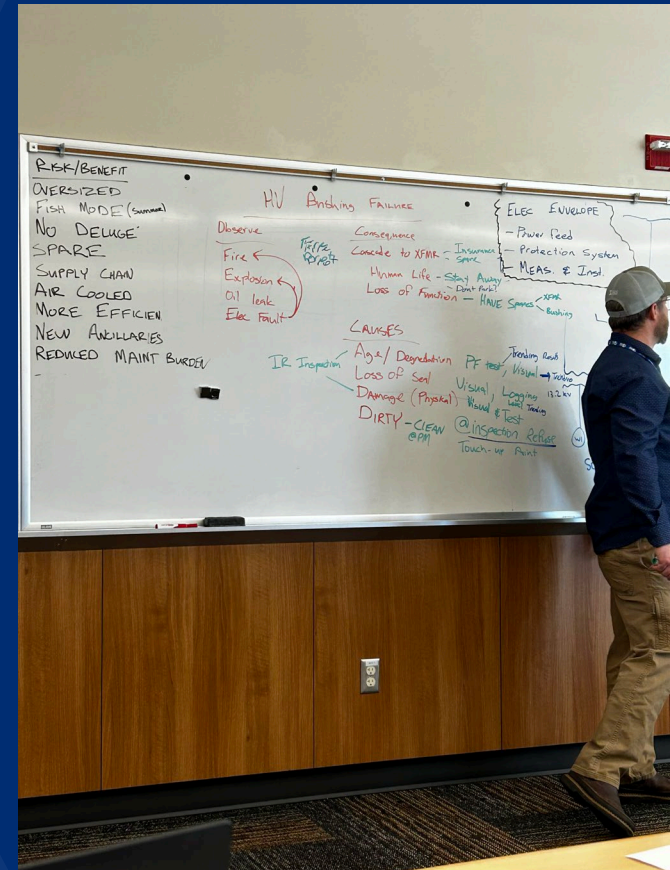 RISK/BENEFIT
OVERSIZED
FISH MODE (Summer)
NO DELUGE
SPARE
SUPPLY CHAIN
AIR COOLED
MORE EFFICIEN
NEW ANCILLARIES
REDUCED MAINT BURDEN
-
HV Bushing FAILURE
Observe
Fire
Explosion
Oil leak
Elec Fault
Consequence
Cascade to XFMR - Insurance
Spare
Human Life - Stay Away
Don't Park!
Loss of Function - HAVE Spares
XFMR
Bushing
CAUSES
IR Inspection
Age/Degradation
Loss of Seal
Damage (Physical)
DIRTY - CLEAN
@PM
PF test, Visual
Trending Result
Visual, Logging
Visual & Test
@ inspection Refuse
Touch-up Paint
ELEC ENVELOPE
- Power Feed
- Protection System
- MEAS. & Inst.
13.2 kV